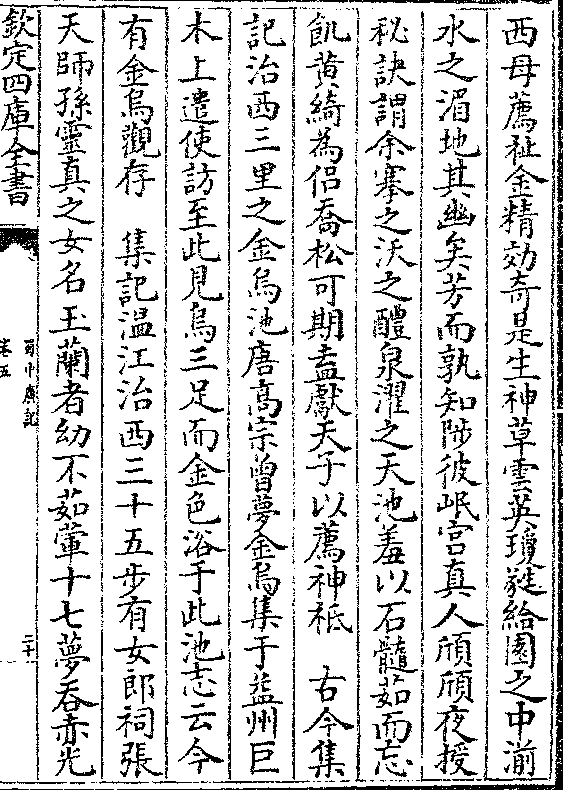 西母薦祉金精効奇是生神草雲英瓊蕤給園之中湔
水之湄地其幽矣芳而孰知陟彼岷宫真人頎頎夜授
秘訣謂余搴之沃之醴泉濯之天池羞以石髓茹而忘
飢黄綺為侣喬松可期盍獻天子以薦神祗　古今集
記治西三里之金烏池唐髙宗曽夢金烏集于益州巨
木上遣使訪至此見烏三足而金色浴于此池志云今
有金烏觀存　集記温江治西三十五步有女郎祠張
天師孫靈真之女名玉蘭者幼不茹葷十七夢吞赤光
欽定四庫全書
蜀中廣記
卷五
二十